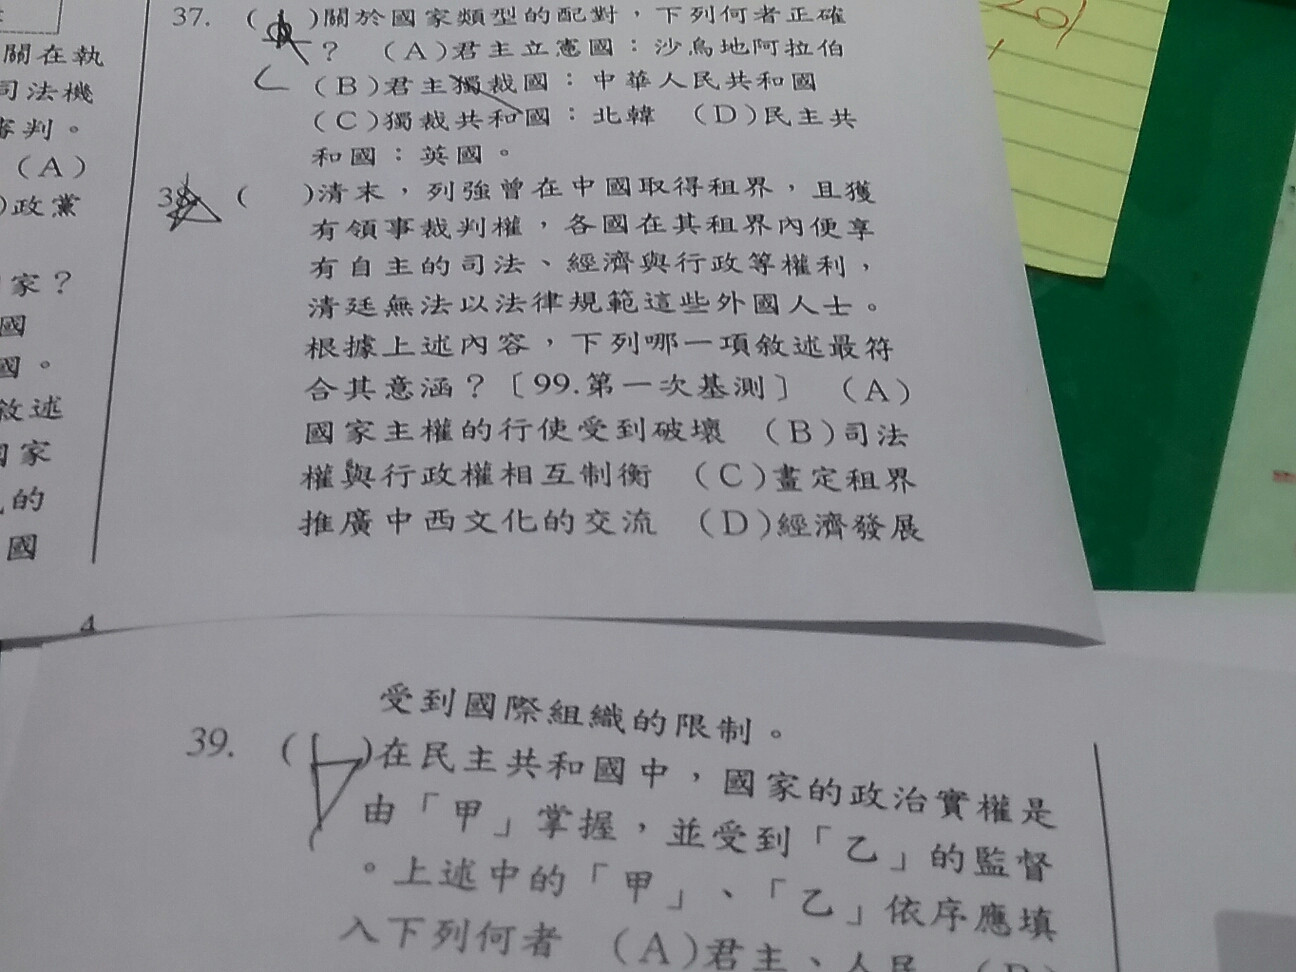 關在執
司法機
審判。
(A)
)政黨
家？
國
國。
敘述
家
的
國
4
37. ( )關於國家類型的配對，下列何者正確
？ (A)君主立憲國：沙烏地阿拉伯
C (B)君主獨裁國：中華人民共和國
(C)獨裁共和國：北韓 (D)民主共
和國：英國。
38. ( )清末，列強曾在中國取得租界，且獲
有領事裁判權，各國在其租界內便享
有自主的司法、經濟與行政等權利，
清廷無法以法律規範這些外國人士。
根據上述內容，下列哪一項敘述最符
合其意涵？〔99.第一次基測〕 (A)
國家主權的行使受到破壞 (B)司法
權與行政權相互制衡 (C)畫定租界
推廣中西文化的交流 (D)經濟發展
受到國際組織的限制。
39. ( )在民主共和國中，國家的政治實權是
由「甲」掌握，並受到「乙」的監督
。上述中的「甲」、「乙」依序應填
入下列何者 (A)君主、人民